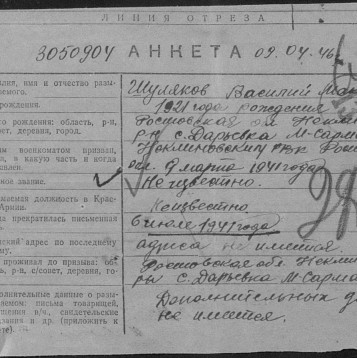 ЛИНИЯ ОТРЕЗА
3050904 АНКЕТА 09.04.46
имя и отчество разы-
ваемого.
Шуляков Василий
рождения.
1921 года рождения
рождения: область, р-н,
ет, деревня, город.
Ростовская об.
р-н с. Дарьевка М-Сарма
военкоматом призван,
в какую часть и когда
Неклиновским РВК
9 марта 1941 года
ное звание.
Неизвестно.
должность в Крас-
Армии.
Неизвестно
прекратилась письменная
В июле 1941 года
адрес по последнему
адреса не имеется.
проживал до призыва: обл.
р-н, с/совет, деревня, го-
Ростовская обл.
р-н с. Дарьевка М-Сарма
данные о разы-
письма товарищей,
свидетельские
и др. (приложить к
Дополнительных
не имеется.